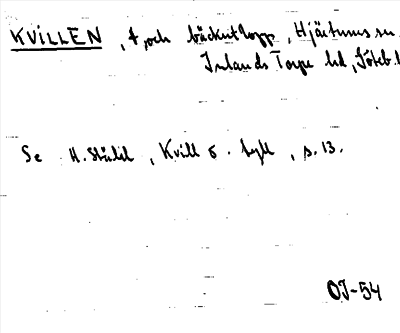 KVILLEN, t, och bäckutlopp, Hjärtums sn
Inlands Torpe hd, Göteb. l
Se H. Ståhl, Kvill o. tyll, s. 13.
OJ-54